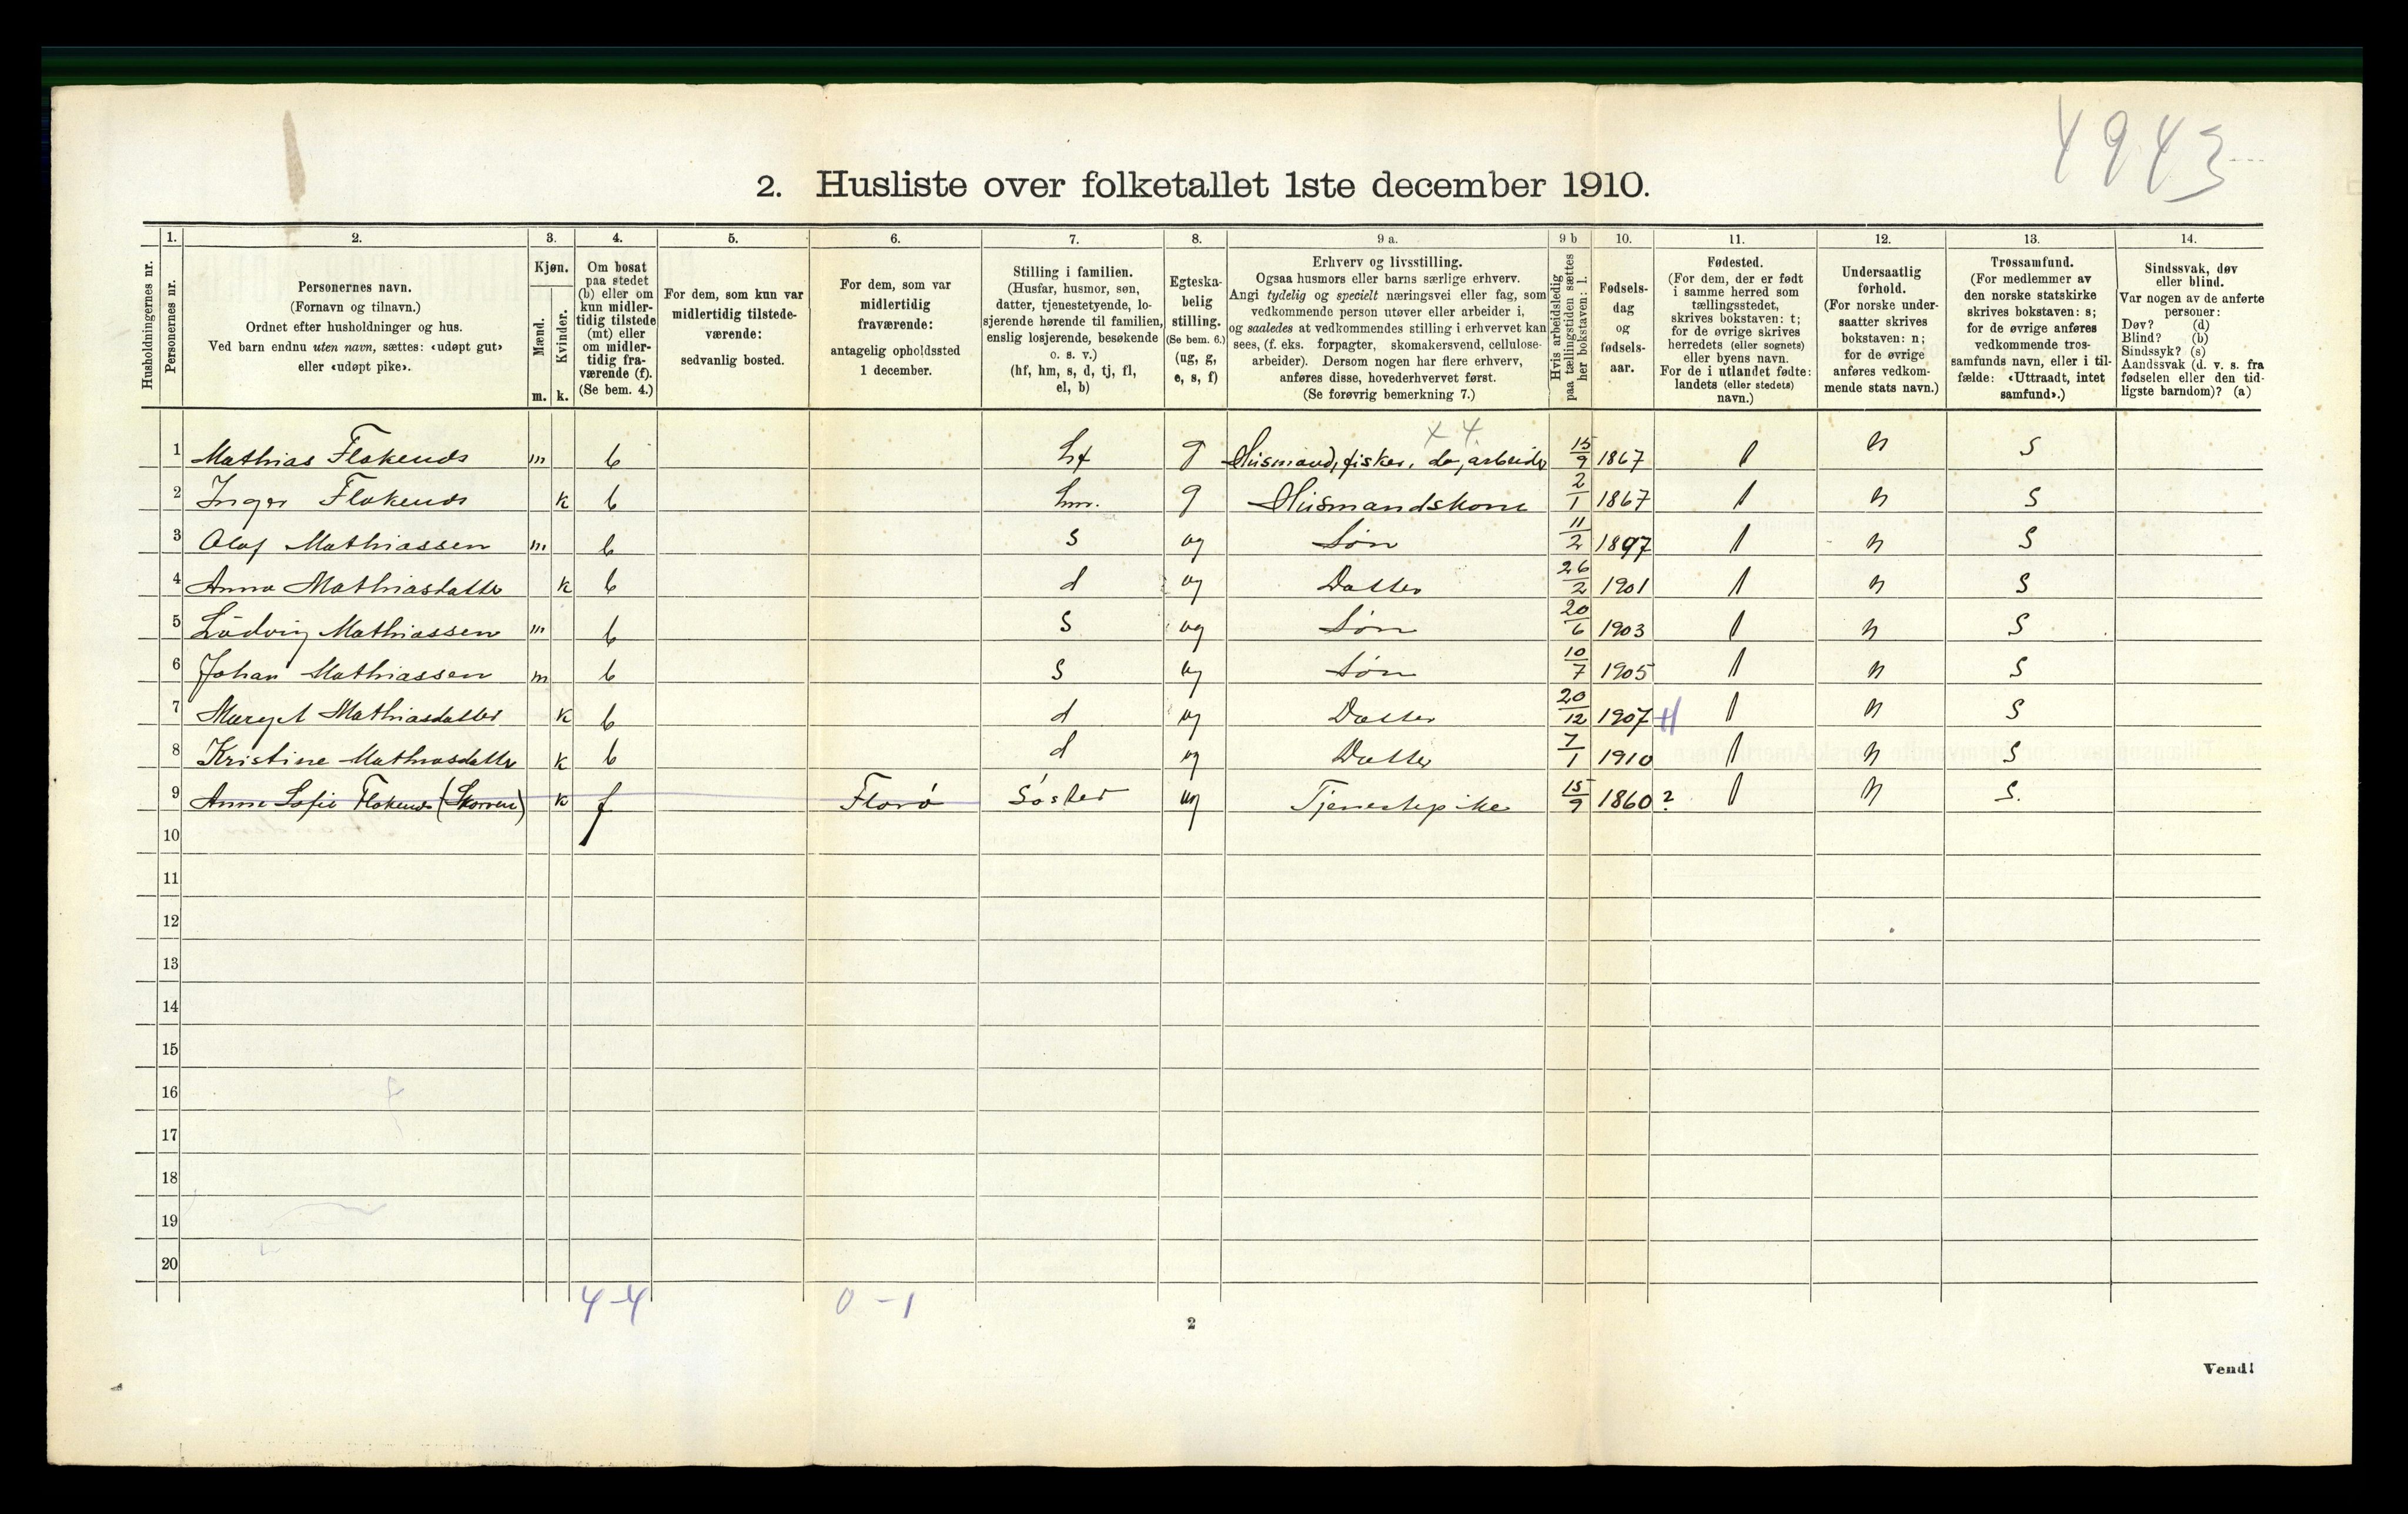 4943
2. Husliste over folketallet 1ste december 1910.
Husholdningernes nr.
1. Personernes nr.
2. Personernes navn.
(Fornavn og tilnavn.)
Ordnet efter husholdninger og hus.
Ved barn endnu uten navn, sættes: «udøpt gut»
eller «udøpt pike».
3. Kjøn.
Mænd. m.
Kvinder. k.
4. Om bosat
paa stedet
(b) eller om
kun midler-
tidig tilstede
(mt) eller
om midler-
tidig fra-
værende (f).
(Se bem. 4.)
5. For dem, som kun var
midlertidig tilstede-
værende:
sedvanlig bosted.
6. For dem, som var
midlertidig
fraværende:
antagelig opholdssted
1 december.
7. Stilling i familien.
(Husfar, husmor, søn,
datter, tjenestetyende, lo-
sjerende hørende til familien,
enslig losjerende, besøkende
o. s. v.)
(hf, hm, s, d, tj, fl,
el, b)
8. Egteska-
belig
stilling.
(Se bem. 6.)
(ug, g,
e, s, f)
9 a. Erhverv og livsstilling.
Ogsaa husmors eller barns særlige erhverv.
Angi tydelig og specielt næringsvei eller fag, som
vedkommende person utøver eller arbeider i,
og saaledes at vedkommendes stilling i erhvervet kan
sees, (f. eks. forpagter, skomakersvend, cellulose-
arbeider). Dersom nogen har flere erhverv,
anføres disse, hovederhvervet først.
(Se forøvrig bemerkning 7.)
9 b Hvis arbeidsledig
paa tællingstiden sættes
her bokstaven: l.
10. Fødsels-
dag
og
fødsels-
aar.
11. Fødested.
(For dem, der er født
i samme herred som
tællingsstedet,
skrives bokstaven: t;
for de øvrige skrives
herredets (eller sognets)
eller byens navn.
For de i utlandet fødte:
landets (eller stedets)
navn.)
12. Undersaatlig
forhold.
(For norske under-
saatter skrives
bokstaven: n;
for de øvrige
anføres vedkom-
mende stats navn.)
13. Trossamfund.
(For medlemmer av
den norske statskirke
skrives bokstaven: s;
for de øvrige anføres
vedkommende tros-
samfunds navn, eller i til-
fælde: «Uttraadt, intet
samfund».)
14. Sindssvak, døv
eller blind.
Var nogen av de anførte
personer:
Døv? (d)
Blind? (b)
Sindssyk? (s)
Aandssvak (d. v. s. fra
fødselen eller den tid-
ligste barndom)? (a)
x 4.
1 Mathias Flokenes m b hf g Husmand, fisker, do, arbeider 15/9 1867 t n s
2 Inger Flokenes k b hm. g Husmandskone 2/1 1867 t n s
3 Olaf Mathiassen m b s ug Søn 11/2 1897 t n s
4 Anna Mathiasdatter k b d ug Datter 26/2 1901 t n s
5 Ludvig Mathiassen m b s ug Søn 20/6 1903 t n s
6 Johan Mathiassen m b s ug Søn 10/7 1905 t n s
7 Margit Mathiasdatter k b d ug Datter 20/12 1907 t n s
8 Kristine Mathiasdatter k b d ug Datter 7/1 1910 t n s
9 Anne Sofie Flokenes k f Florø Søster ug Tjenestepike 15/9 1860 ? t n s.
10
11
12
13
14
15
16
17
18
19
20
4-4 0-1
2
Vend!